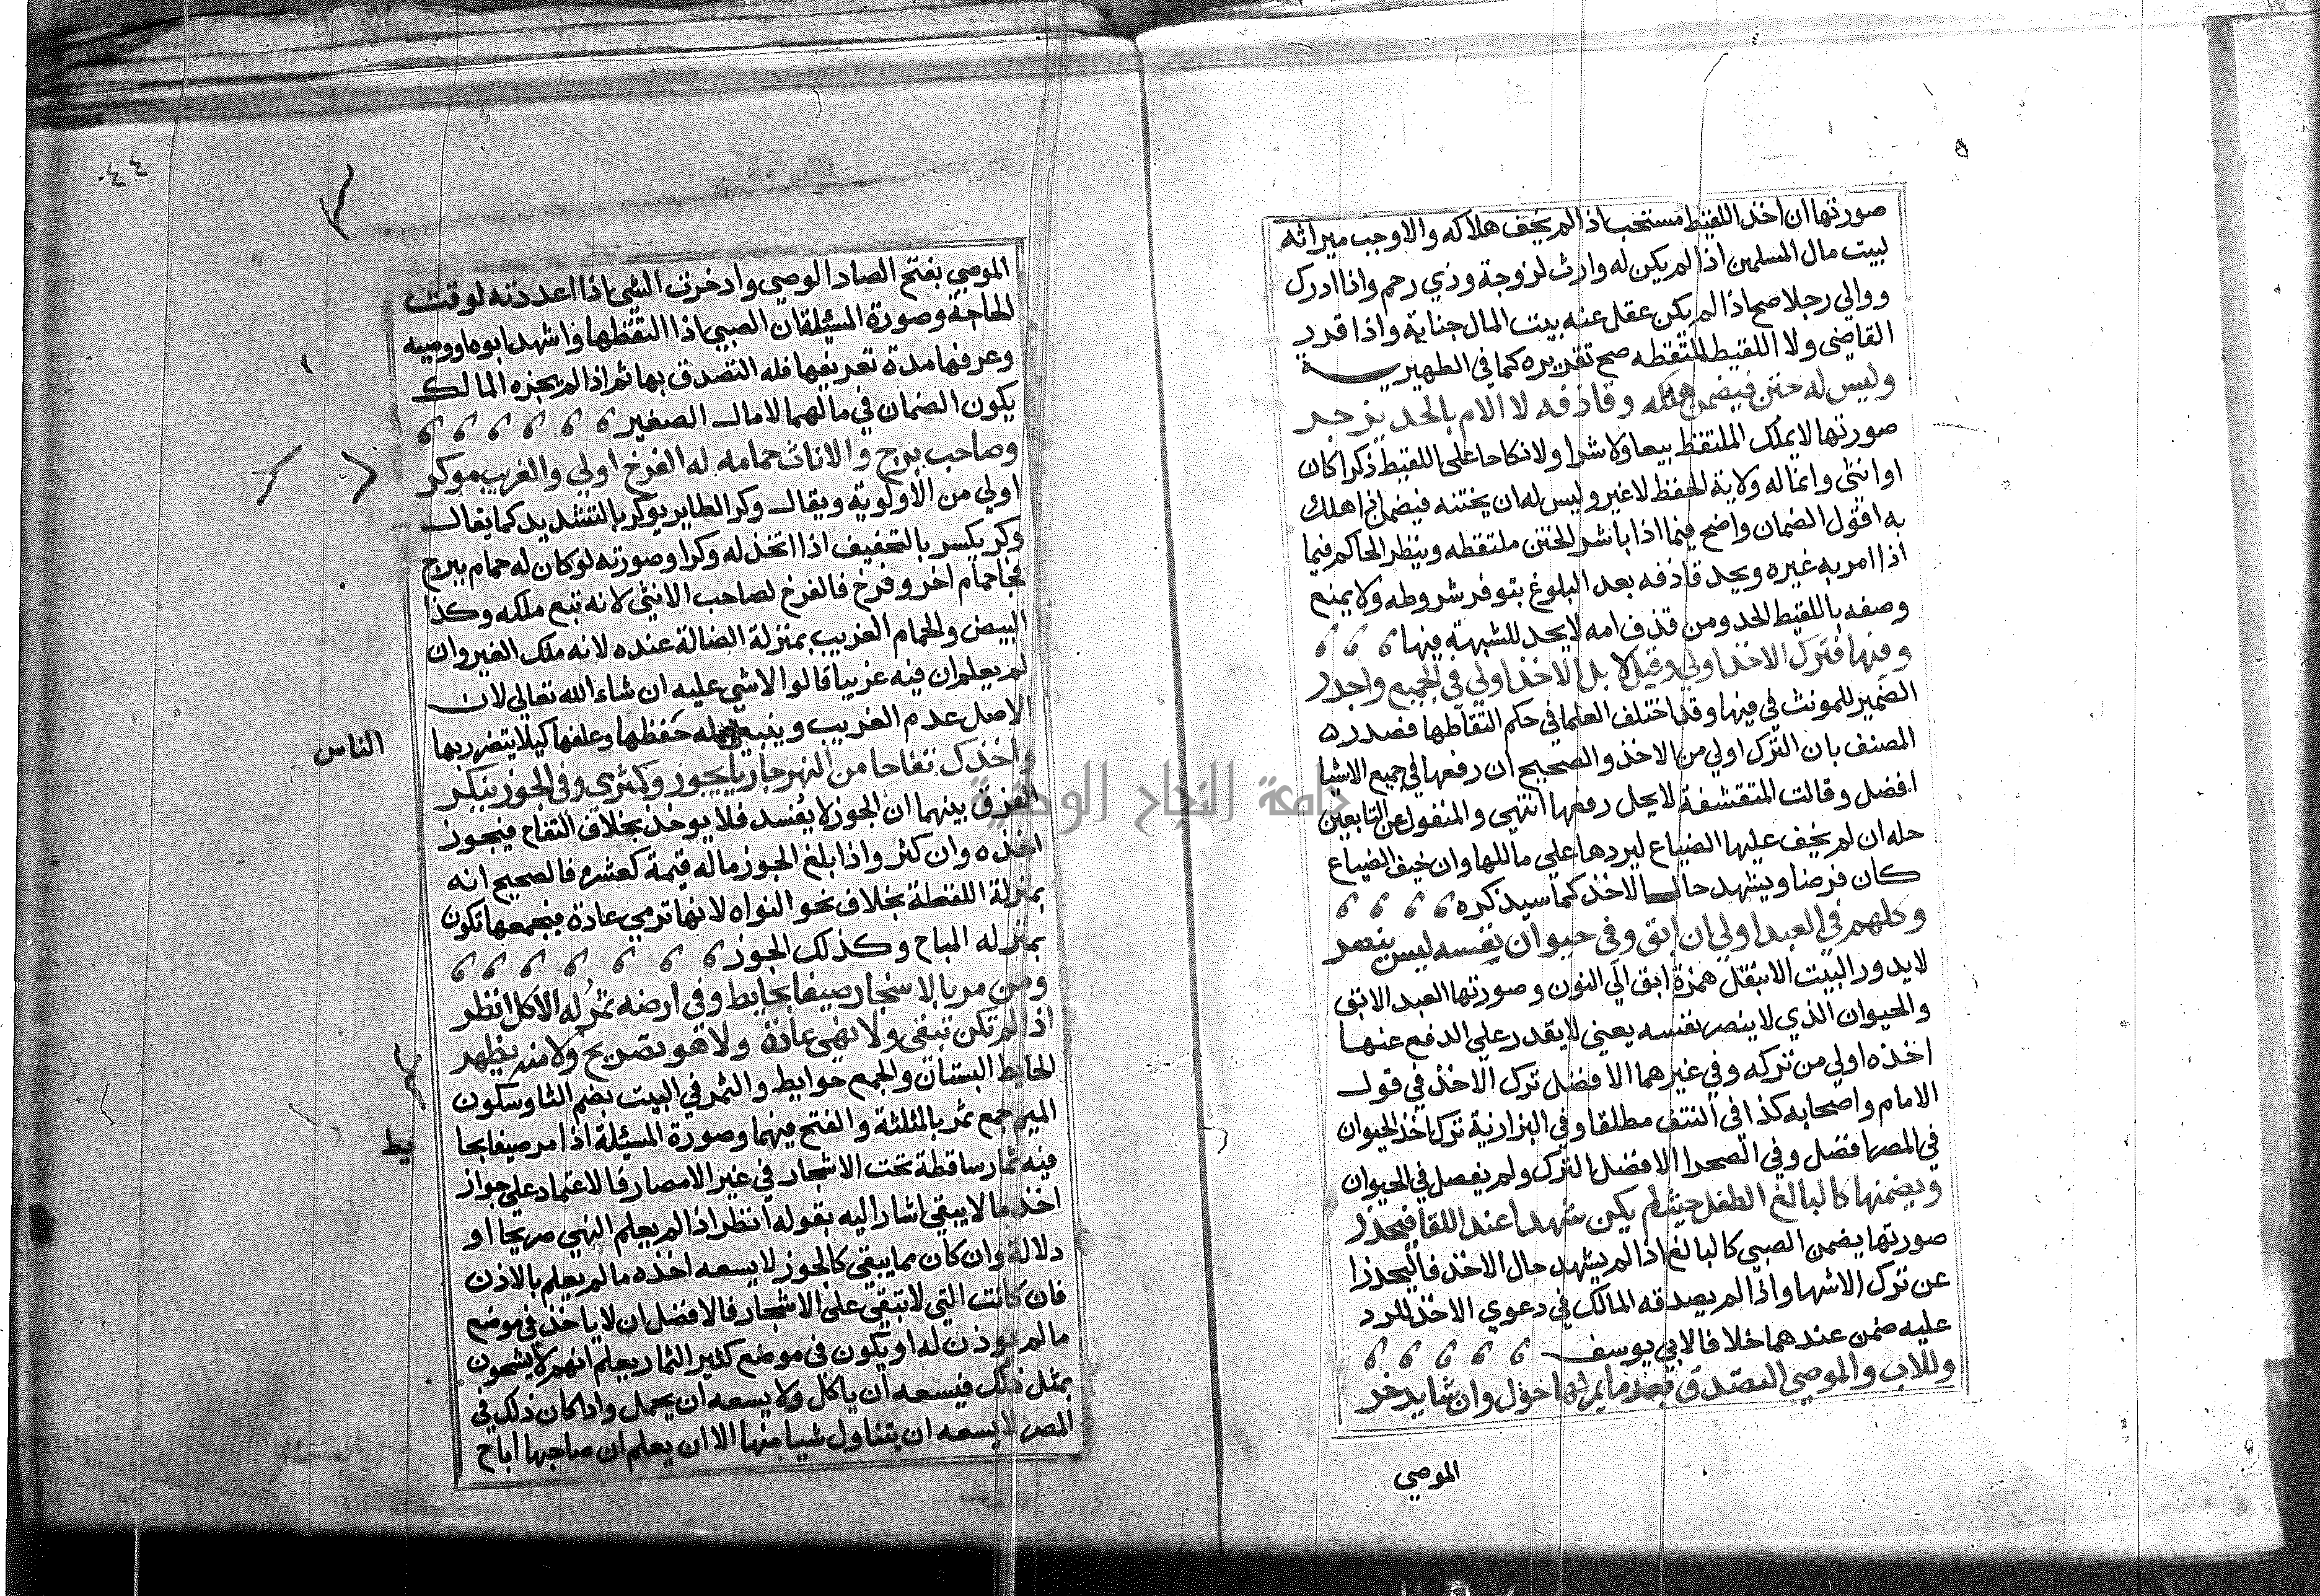 صورتها ان اخذ اللقيط مستحب اذا لم يخف هلاكه والا وجب ميراثه
لبيت مال المسلمين اذا لم يكن له وارث لزوجة وذي رحم واذا ادرك
ووالي رجلا صح اذا لم يكن عقل عنه بيت المال جناية واذا قدر
القاضي ولا اللقيط لملتقطه صح تقديره كما في الظهيرية
وليس له ختن فيضمن هلكه وقاذفه لا الام بالحد يزجر
صورتها لا يملك الملتقط بيعا ولا شرا ولا نكاحا على اللقيط ذكرا كان
او انثى وانما له ولاية الحفظ لا غير وليس له ان يختنه فيضمن ان هلك
به اقول الضمان واضح فيما اذا باشر الختن ملتقطه وينظر الحاكم فيما
اذا امر به غيره ويحد قاذفه بعد البلوغ بتوفر شروطه ولا يمنع
وصفه باللقيط الحد ومن قذف امه لا يحد للشبهة فيها
وفيها فترك الاخذ اولي وقيل لا بل الاخذ اولي في الجميع واجدر
الضمير للمونث في فيها وقد اختلف العلما في حكم التقاطها فصدره
المصنف بان الترك اولي من الاخذ والصحيح ان رفعها في جميع الاشيا
افضل وقالت المتقشفة لا يحل رفعها انتهى والمنقول عن التابعين
حله ان لم يخف عليها الضياع ليردها على مالكها وان خيف الضياع
كان فرضا ويشهد حال الاخذ كما سيذكره
وكلهم في العبد اولي ان ابق وفي حيوان نفسه ليس ينصر
لا يدور البيت الا بنقل همزة ابق الي النون وصورتها العبد الابق
والحيوان الذي لا ينصر نفسه يعني لا يقدر على الدفع عنها
اخذه اولي من تركه وفي غيرهما الافضل ترك الاخذ في قول
الامام واصحابه كذا في النتف مطلقا وفي البزازية ترك اخذ الحيوان
في المصر افضل وفي الصحرا الافضل الترك ولم يفصل في الحيوان
ويضمنها كالبالغ الطفل حيث لم يكن شهدا عند اللقا فيحذر
صورتها يضمن الصبي كالبالغ اذا لم يشهد حال الاخذ فاليحذرا
عن ترك الاشها واذا لم يصدقه المالك في دعوي الاخذ للرد
عليه ضمن عندهما خلافا لابي يوسف
وللاب والموصي التصدق بعد ما حول وان شا يدخر
الموصي
٤٤
الموصي بفتح الصاد الوصي وادخرت الشي اذا اعددته لوقت
الحاجة وصورة المسئلة ان الصبي اذا التقطها واشهد ابوه او وصيه
وعرفها مدة تعريفها فله التصدق بها ثم اذا لم يجزه المالك
يكون الضمان في مالهما لا مال الصغير
وصاحب برج والاناث حمامه له الفرخ اولي والغريب موكر
اولي من الاولوية ويقال وكر الطاير يوكر بالتشديد كما يقال
وكر يكسر بالتخفيف اذا اتخذ له وكرا وصورته لو كان له حمام ببرج
فجا حمام اخر وفرخ فالفرخ لصاحب الانثى لانه تبع ملكه وكذا
البيض والحمام الغريب بمنزلة الضالة عنده لانه ملك الغير وان
لم يعلم ان فيه غريبا قالوا لا شي عليه ان شاء الله تعالى لان
الاصل عدم الغريب وينبغي له حفظها وعلفها كيلا يتضرر بها
الناس
واخذك تفاحا من النهر جاريا يجوز وكمثرى وفي الجوز ينكر
الفرق بينهما ان الجوز لا يفسد فلا يوخذ بخلاف التفاح فيجوز
اخذه وان كثر واذا بلغ الجوز ماله قيمة كعشره فالصحيح انه
بمنزلة اللقطة بخلاف نحو النواه لانها ترمي عادة فيجمعها تكون
بمنزله المباح وكذلك الجوز
ومن مر بالاشجار صيفا بحايط وفي ارضه ثمر له الاكل انظر
اذا لم تكن تبقى ولا نهي عادة ولا هو تصريح ولا منه يظهر
الحايط البستان والجمع حوايط والثمر في البيت بضم الثا وسكون
الميم جمع ثمر بالمثلثة والفتح فيهما وصورة المسئلة اذا مر صيفا بحا
يط
فيه ثمار ساقطة تحت الاشجار في غير الامصار فالاعتماد على جواز
اخذ ما لا يبقي اشار اليه بقوله انظر اذا لم يعلم النهي صريحا او
دلالة وان كان مما يبقى كالجوز لا يسعه اخذه ما لم يعلم بالاذن
فان كانت التي لا تبقى على الاشجار فالافضل ان لا ياخذ في موضع
ما لم يوذن له او يكون في موضع كثير الثمار يعلم انهم لا يشحون
بمثل ذلك فيسعه ان ياكل ولا يسعه ان يحمل واذا كان ذلك في
المصر لا يسعه ان يتناول شيا منها الا ان يعلم ان صاحبها اباح
جامعة النجاح الوطنية